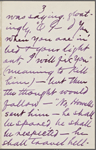 3
was saying, gloat-
ingly, "C. B. & Q.,
when you are in
bed & your light
out, I will fix you"
(meaning to kill
him)—but then
the thought would
follow—"No, Howell
sent him—he shall
be spared, he shall
be respected—he
shall travel hell-